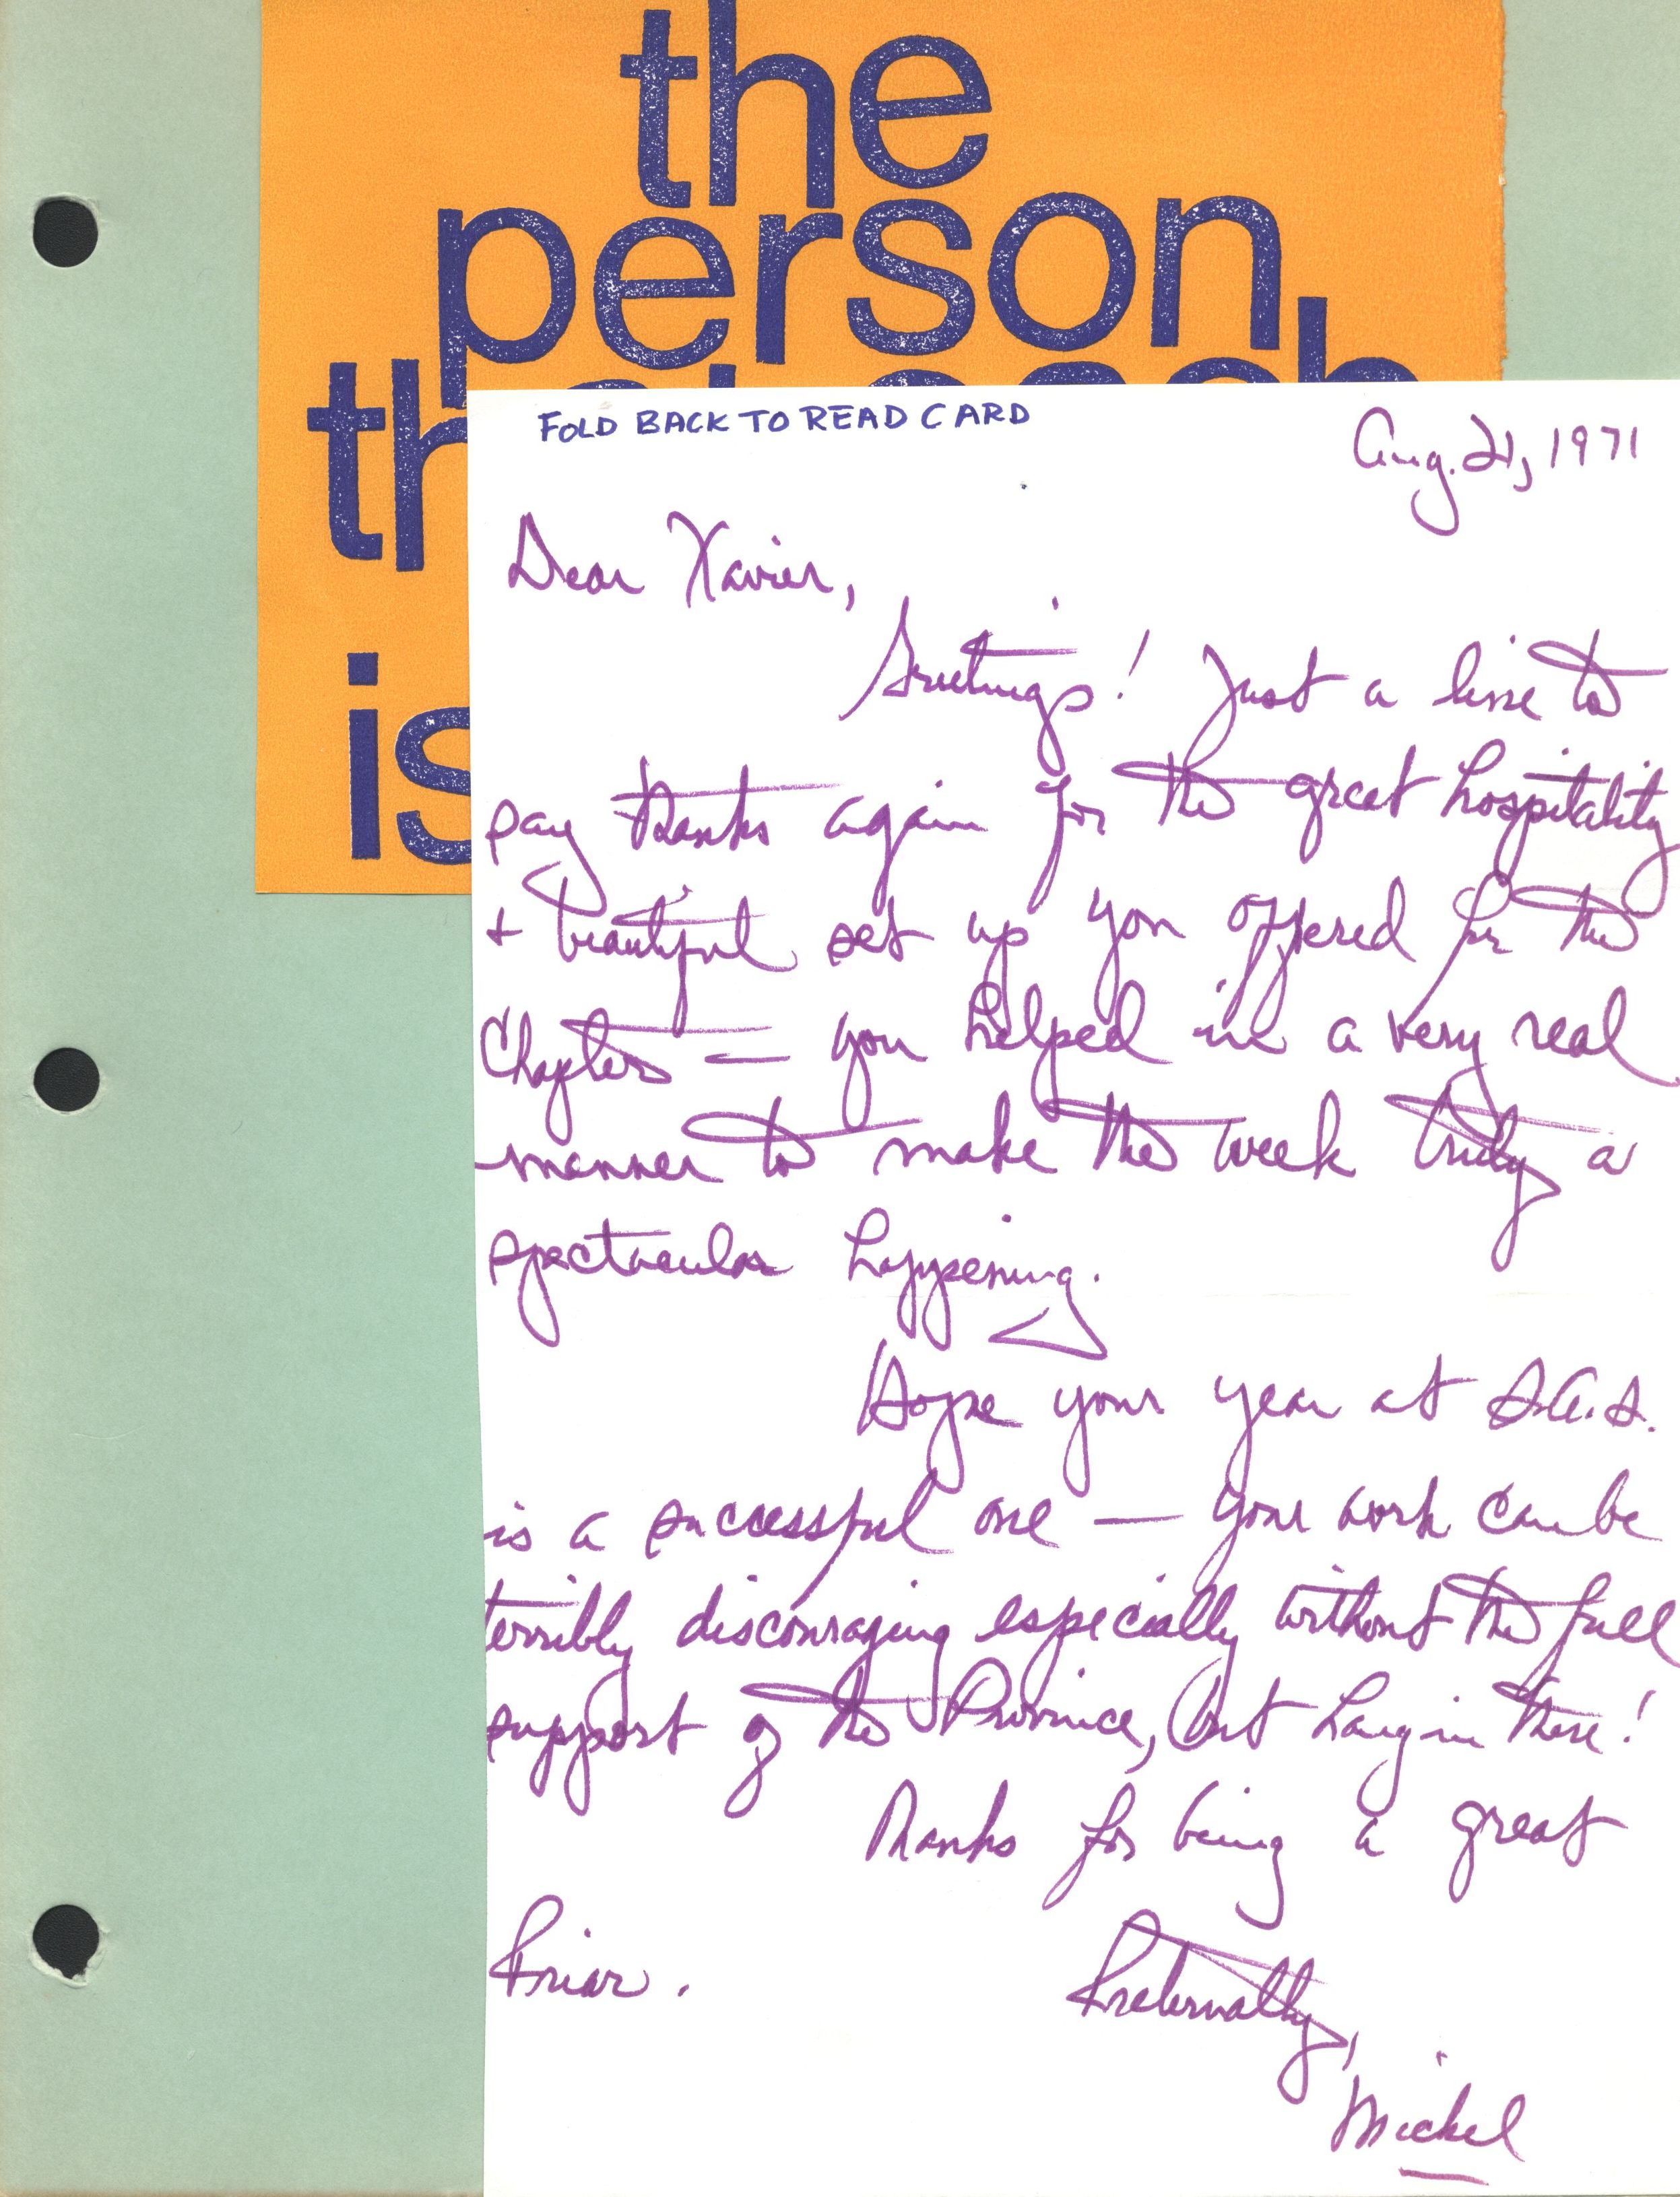 the
person
th
is
FOLD BACK TO READ CARD
Aug. 21, 1971
Dear Xavier,
Greetings! Just a line to
say thanks again for the great hospitality
+ beautiful set up you offered for the
Chapter — you helped in a very real
manner to make the week truly a
spectacular happening.
Hope your year at S.A.S.
is a successful one — your work can be
terribly discouraging especially without the full
support of the Province, but hang in there!
Thanks for being a great
Friar.
Fraternally,
Michel